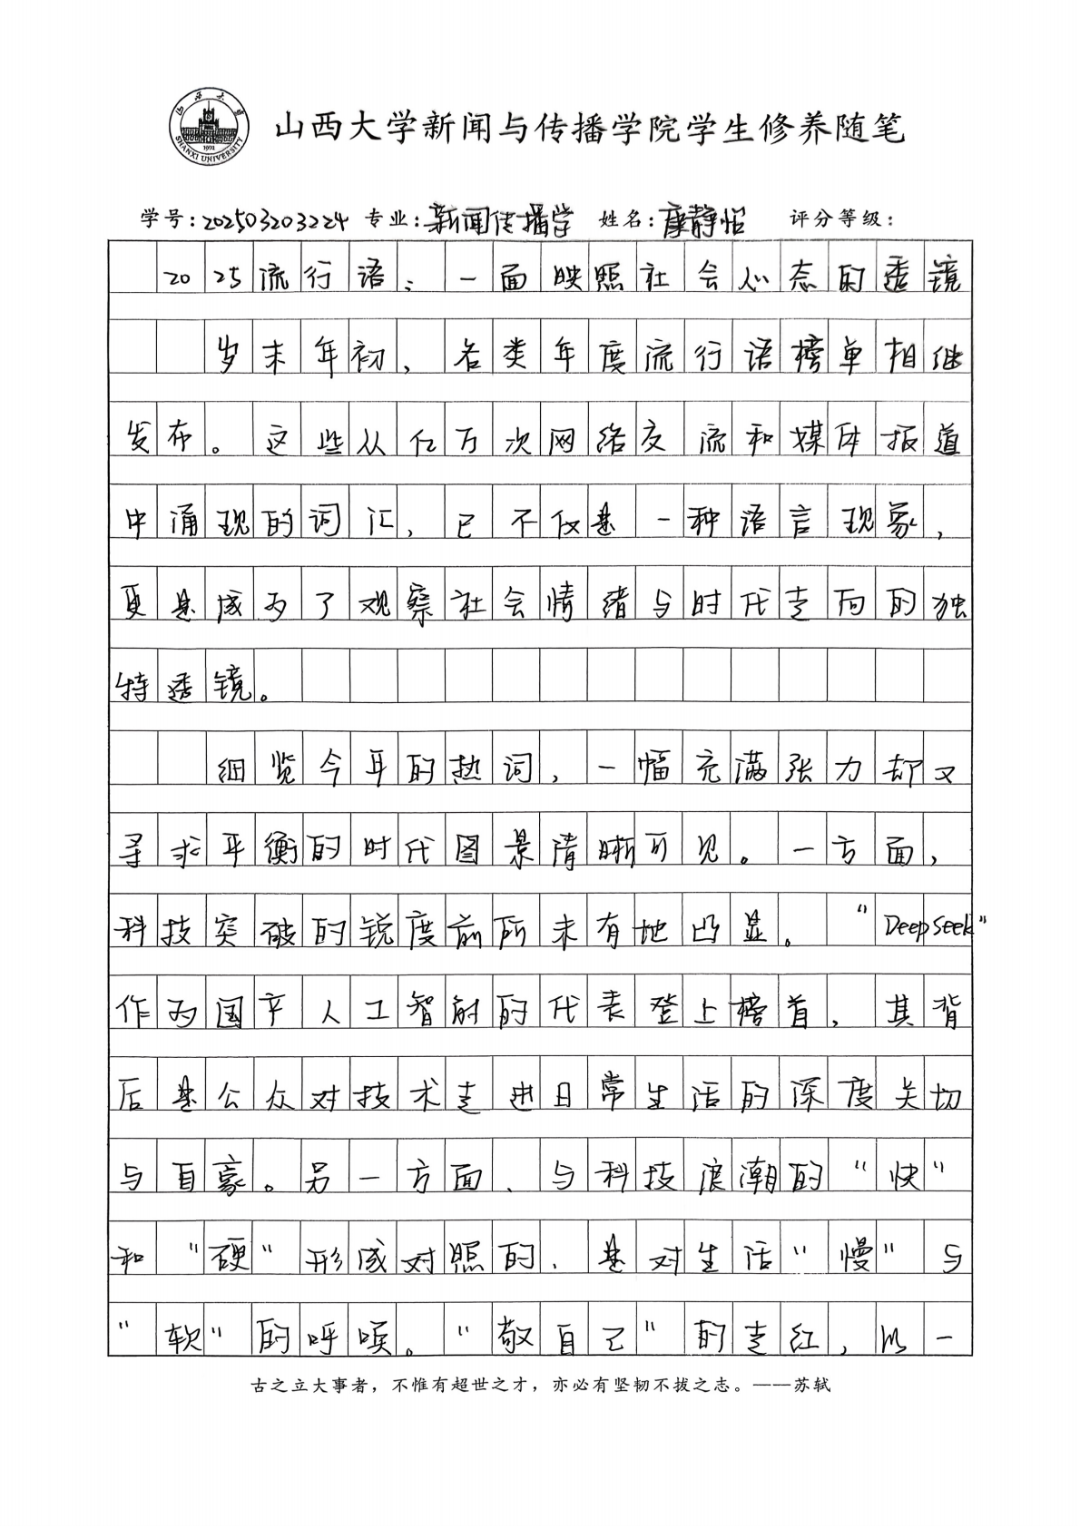 山西大学
SHANXI UNIVERSITY
1902
山西大学新闻与传播学院学生修养随笔
学号:202503203224 专业:新闻传播学 姓名:康静怡 评分等级:
2025流行语:一面映照社会心态的透镜
岁末年初,各类年度流行语榜单相继
发布。这些从亿万次网络交流和媒体报道
中涌现的词汇,已不仅是一种语言现象,
更是成为了观察社会情绪与时代走向的独
特透镜。
细览今年的热词,一幅充满张力却又
寻求平衡的时代图景清晰可见。一方面,
科技突破的锐度前所未有地凸显。“DeepSeek”
作为国产人工智能的代表登上榜首,其背
后是公众对技术走进日常生活的深度关切
与自豪。另一方面、与科技浪潮的“快”
和“硬”形成对照的、是对生活“慢”与
“软”的呼唤。“敬自己”的走红,以一
古之立大事者,不惟有超世之才,亦必有坚韧不拔之志。——苏轼